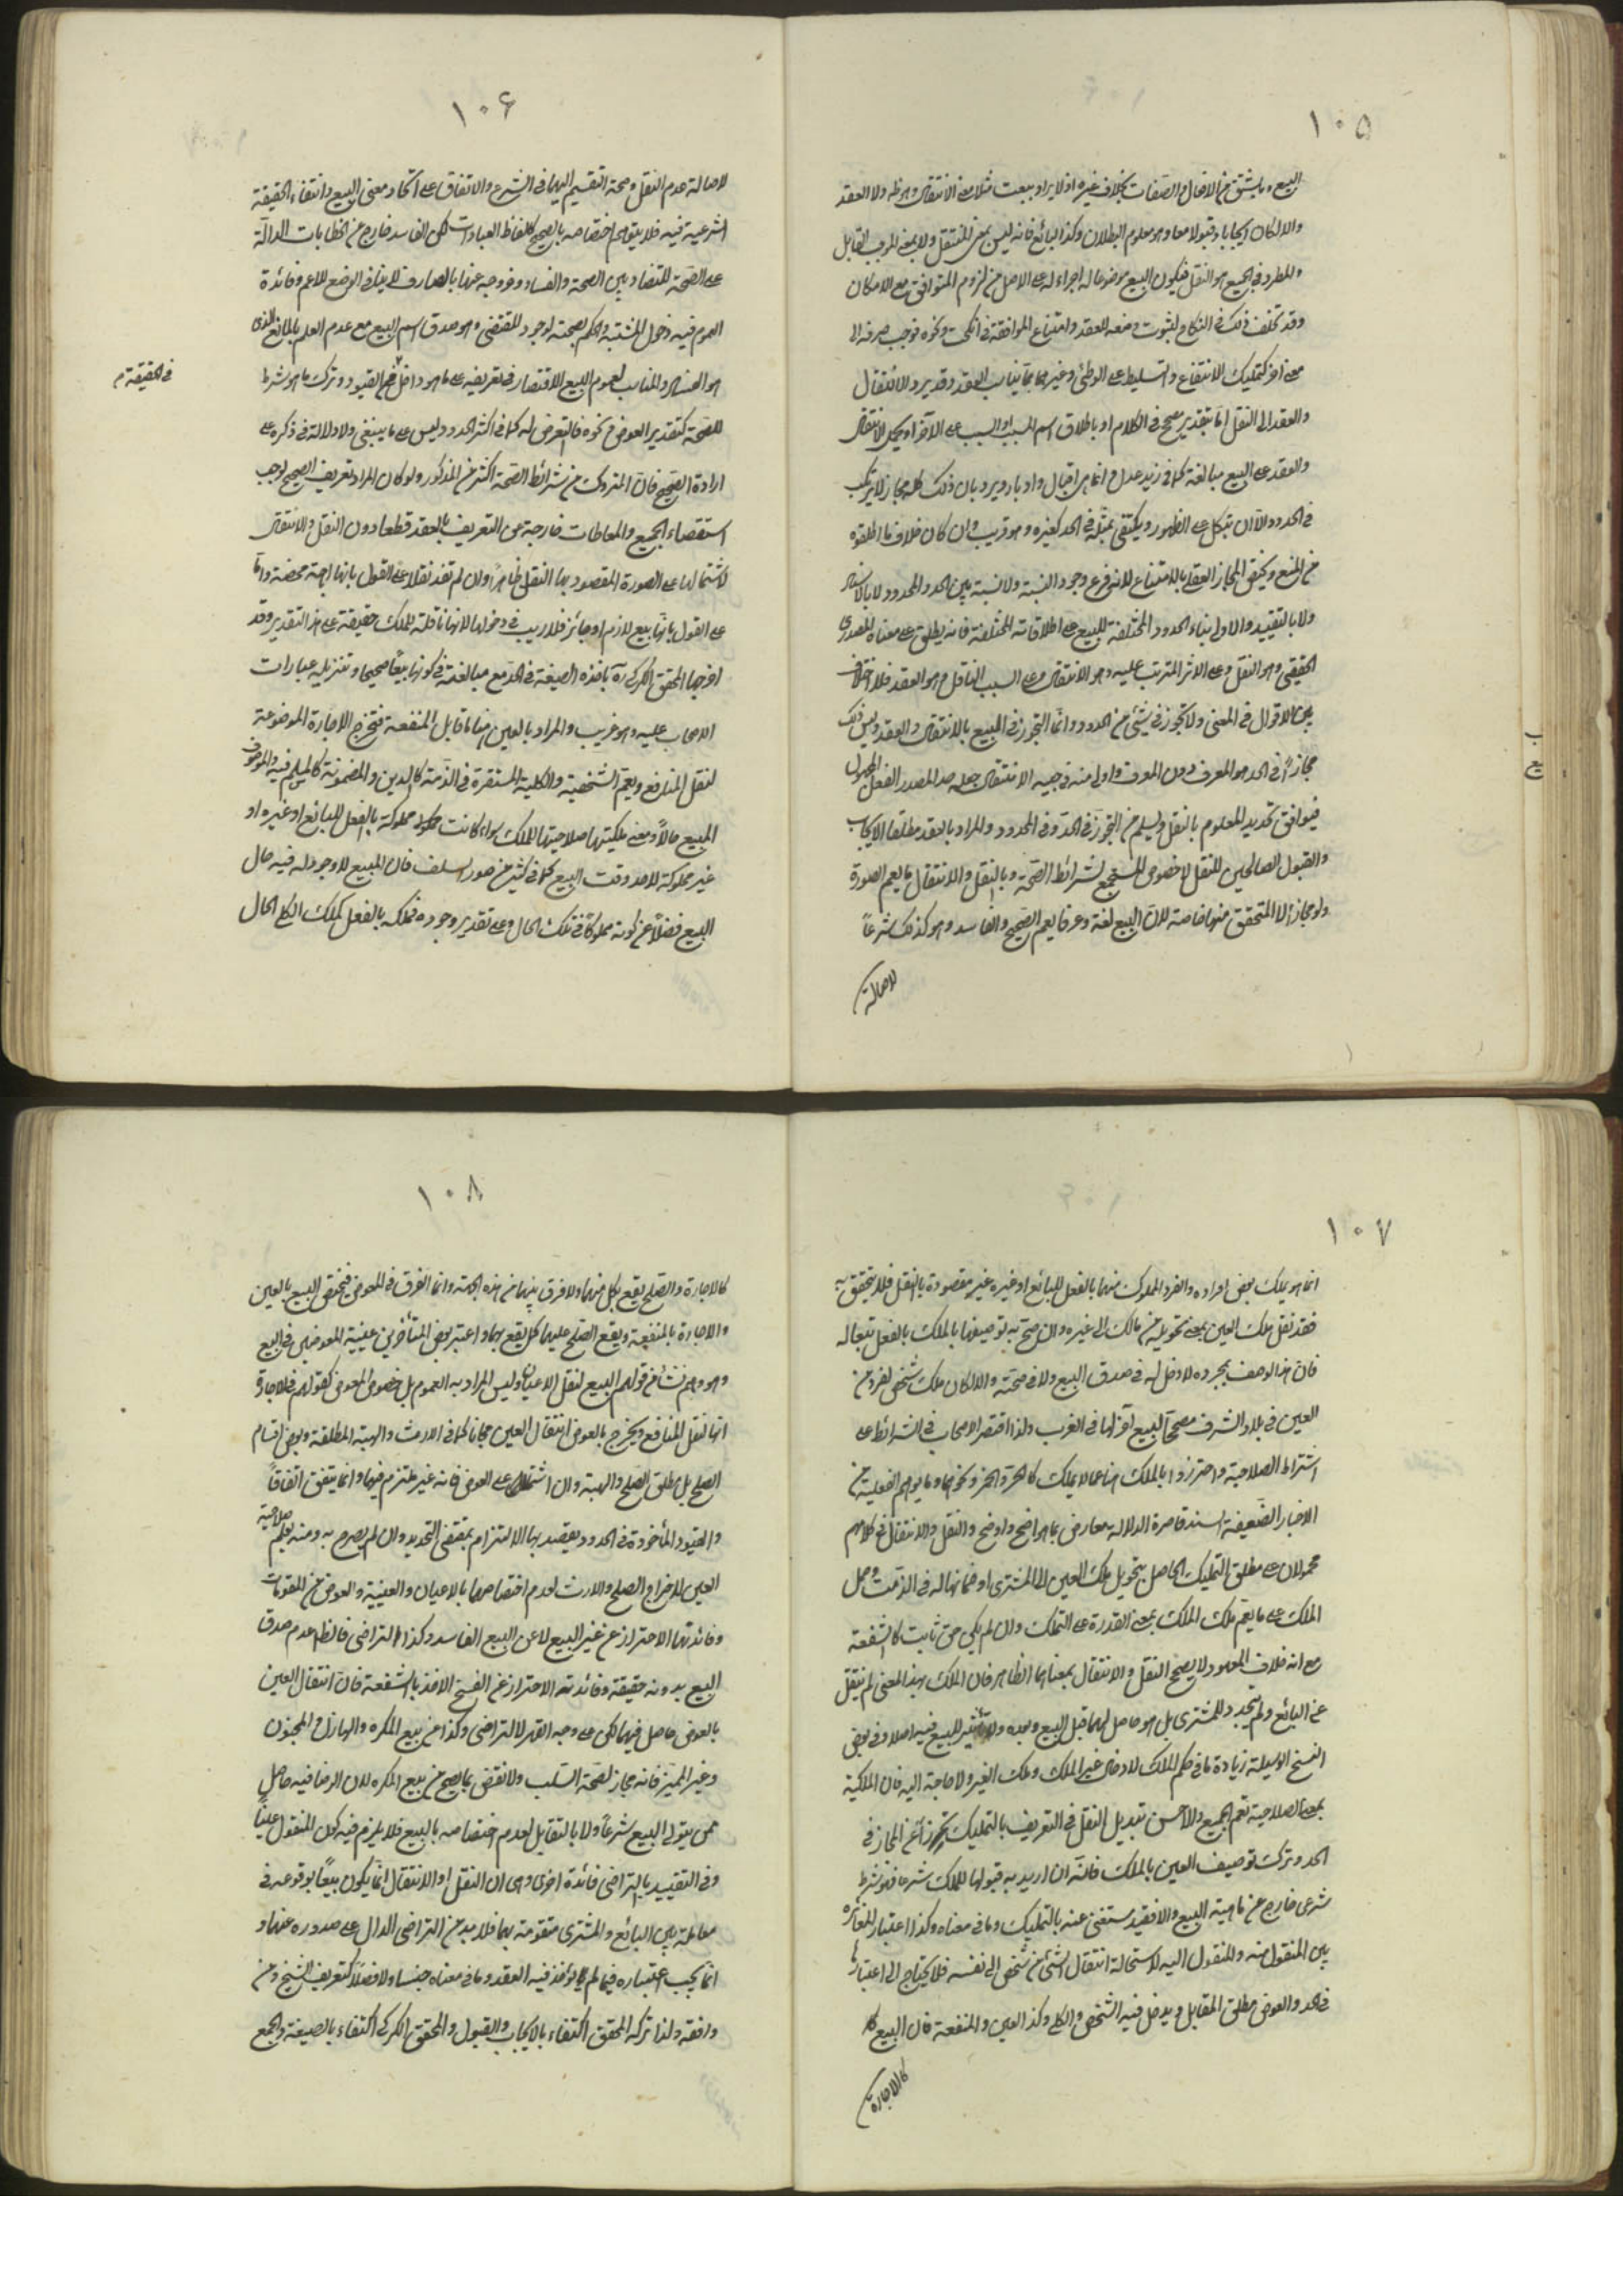 ١٠٥
البيع وما يشتق من الافعال والصفات بخلاف غيره اذ لا يراد ببعت مثلا معنى الانتقال وهو ظ ولا العقد
والا لكان ايجابا وقبولا معا وهو معلوم البطلان وكذا البائع فانه ليس بمعنى المنتقل ولا بمعنى الموجب القابل
والمطرد في الجميع هو النقل فيكون البيع موضوعا له اجراء له على الاصل من لزوم التوافق مع الامكان
وقد تخلف ذلك في النكاح لثبوت وضعه للعقد وامتناع الموافقة في انكحت ونحوه فوجب صرفه الى
معنى اخر كتمليك الانتفاع والتسليط على الوطئ وغيرهما مما يناسب العقد وقد يرد الانتقال
والعقد الى النقل اما بتقدير مصحح في الكلام او باطلاق اسم المسبب او السبب على الآخر او بحمل الانتقال
والعقد على البيع مبالغة كما في زيد عدل وانما هي اقبال وادبار ويرد بان ذلك كله مجاز لا يرتكب
في الحدود الا ان يتكل على الظهور ويكتفى بمثله في الحد كغيره وهو قريب وان كان خلاف ما اطلقوه
من المنع ويختص المجاز العقلي بالامتناع لانه فرع وجود النسبة ولا نسبة بين الحد والمحدود لا بالاسناد
ولا بالتقييد والاولى بناء الحدود المختلفة للبيع على اطلاقاته المختلفة فانه يطلق على معناه المصدري
الحقيقي وهو النقل وعلى الاثر المترتب عليه وهو الانتقال وعلى السبب الناقل وهو العقد فلا اختلاف
بين الاقوال في المعنى ولا تجوز في شيئ من الحدود وانما التجوز في البيع بالانتقال والعقد وليس ذلك
مجازاً في الحد هو المعرف دون المعرف واولى منه توجيه الانتقال بجعله حد المصدر الفعل المجهول
فيوافق تحديد المعلوم بالنقل ويسلم من التجوز في الحد وفي المحدود والمراد بالعقد مطلق الايجاب
والقبول الصالحين للنقل لا خصوص المستجمع لشرائط الصحة وبالنقل والانتقال ما يعم الصورة
ولو مجازا لا المتحقق منهما خاصة لان البيع لغة وعرفا يعم الصحيح والفاسد وهو كذلك شرعاً
لاصالة
١٠٦
لاصالة عدم النقل وصحة التقسيم اليهما في الشرع والاتفاق على اتحاد معنى البيع وانتفاء الحقيقة
الشرعية فيه فلا يتوهم اختصاصه بالصحيح كالفاظ العبادات لكن الفاسد خارج عن الخطابات الدالة
على الصحة للتضاد بين الصحة والفساد وخروجه عنها بالصارف لا ينافي الوضع للاعم وفائدة
العموم فيه دخول المشتبه والحكم بصحته لوجود المقتضي وهو صدق اسم البيع مع عدم العلم بالمانع الذي
هو الفساد والمناسب لعموم البيع الاقتصار في تعريفه على ما هو داخل من القيود وترك ما هو شرط
في الحقيقة م
للصحة كتقدير العوض ونحوه فالتعرض له كما في اكثر الحدود ليس على ما ينبغي ولا دلالة في ذكره على
ارادة الصحيح فان المتروك من شرائط الصحة اكثر من المذكور ولو كان المراد تعريف الصحيح لوجب
استقصاء الجميع والمعاطات خارجة عن التعريف بالعقد قطعا دون النقل والانتقال
لاشتمالها على الصورة المقصود بها النقل ظاهراً وان لم تفد نقلا على القول بانها اباحة محضة واما
على القول بانها بيع لازم او جائز فلا ريب في دخولها لانها ناقلة للملك حقيقة على هذا التقدير وقد
اخرجها المحقق الكركي ره باخذه الصيغة في الحد مع مبالغته في كونها بيعاً صحيحا وتنزيله عبارات
الاصحاب عليه وهو غريب والمراد بالعين هنا ما قابل المنفعة فتخرج الاجارة الموضوعة
لنقل المنافع ويعم الشخصية والكلية المستقرة في الذمة كالدين والمضمونة كالمسلم فيه والموصوف
المبيع حالاً ومعنى ملكيتها صلاحيتها للملك سواء كانت مملوكة بالفعل للبائع او غيره او
غير مملوكة لاحد وقت البيع كما في كثير من صور السلف فان المبيع لا وجود له فيه حال
البيع فضلاً عن كونه مملوكاً في تلك الحال وعلى تقدير وجوده فتملكه بالفعل كملك الكلي الحال
١٠٧
انما هو بملك بعض افراده والفرد المملوك منهما بالفعل للبائع او غيره غير مقصودة بالنقل فلا يتحقق به
فقد نقل ملك العين بمعنى تحويله من مالك الى غيره وان صح به توصيفها بالملك بالفعل تبعا له
فان هذا الوصف بمجرده لا دخل له في صدق البيع ولا في صحته والا لكان ملك شخص لفرد من
العين في بلاد الشرق مصححا لبيع آخر لها في الغرب ولذا اقتصر الاصحاب في الشرائط على
اشتراط الصلاحية واحترزوا بالملك هنا عما لا يملك كالحر والخمر ونحوهما وما يوهم الفعلية من
الاخبار الضعيفة السند قاصرة الدلالة معارض بما هو اصح واوضح والنقل والانتقال في كلامهم
محمولان على مطلق التمليك الحاصل بتحويل ملك العين الى المشتري او ضمانها له في الذمة وحمل
الملك على ما يعم ملك الملك بمعنى القدرة على التملك وان لم يكن حق ثابت كالشفعة
مع انه خلاف المعهود لا يصح النقل والانتقال بمعناهما الظاهر فان الملك بهذا المعنى لم ينتقل
عن البائع ولم يتجدد للمشتري بل هو حاصل لهما قبل البيع وبعده ولا تأثير للبيع فيه اصلا وفي بعض
النسخ الوسيلة زيادة ما في حكم الملك لادخال غير الملك وملك الغير ولا حاجة اليه فان الملكية
بمعنى الصلاحية تعم الجميع والاحسن تبديل النقل في التعريف بالتمليك تحرزاً عن المجاز في
الحد وترك توصيف العين بالملك فانه ان اريد به قبولها للملك شرعا فهو شرط
شرعي خارج عن ماهية البيع والا فقد يستغنى عنه بالتمليك وما في معناه وكذا اعتبار المغائرة
بين المنقول منه والمنقول اليه لاستحالة انتقال الشيئ من شخص الى نفسه فلا يحتاج الى اعتبارها
في الحد والعوض مطلق المقابل ويدخل فيه الشخص والكلي وكذا العين والمنفعة فان البيع كا
كالاجارة
١٠٨
كالاجارة والصلح يقع بكل منهما ولا فرق بينهما من هذه الجهة وانما الفرق في المعوض فيختص البيع بالعين
والاجارة بالمنفعة ويقع الصلح عليهما كل يقع بهما واعتبر بعض المتأخرين عينية العوضين في البيع
وهو وهم نشأ من قولهم البيع لنقل الاعيان وليس المراد به العموم بل خصوص المعوض كقولهم في الاجارة
انها لنقل المنافع ويخرج بالعوض انتقال العين مجانا كما في الارث والهبة المطلقة وبعض اقسام
الصلح بل مطلق الصلح والهبة وان اشتملا على العوض فانه غير ملتزم فيهما وانما يتفق اتفاقاً
والقيود المأخوذة في الحدود يقصد بها الالتزام بمقتضى التحديد وان لم يصرح به ومنه يعلم صلاحية
العين لاخراج الصلح والارث لعدم اختصاصهما بالاعيان والعينية والعوض من المقومات
وفائدتهما الاحتراز عن غير البيع لا عن البيع الفاسد وكذا التراضي فالظاهر عدم صدق
البيع بدونه حقيقة وفائدته الاحتراز عن الفسخ الاخذ بالشفعة فان انتقال العين
بالعوض حاصل فيهما لكن على وجه القهر لا التراضي وكذا من بيع المكره والهازل والمجنون
وغير المميز فانه مجاز لصحة السلب ولا نقض بما يصح من بيع المكره لان الرضا فيه حاصل
ممن يتولى البيع شرعاً ولا بالتقابل لعدم اختصاصه بالبيع فلا يلزم فيه كون المنقول عيناً
وفي التقييد بالتراضي فائدة اخرى وهي ان النقل او الانتقال انما يكون بيعاً بوقوعه في
معاملة بين البائع والمشتري متقومة بهما فلا بد من التراضي الدال على صدوره عنهما و
انما يجب اعتباره فيما لم يؤخذ فيه العقد وما في معناه جنسا ولا فصلاً كتعريف الشيخ ومن
وافقه ولذا تركه المحقق اكتفاء بالايجاب والقبول والمحقق الكركي اكتفاء بالصيغة والجمع